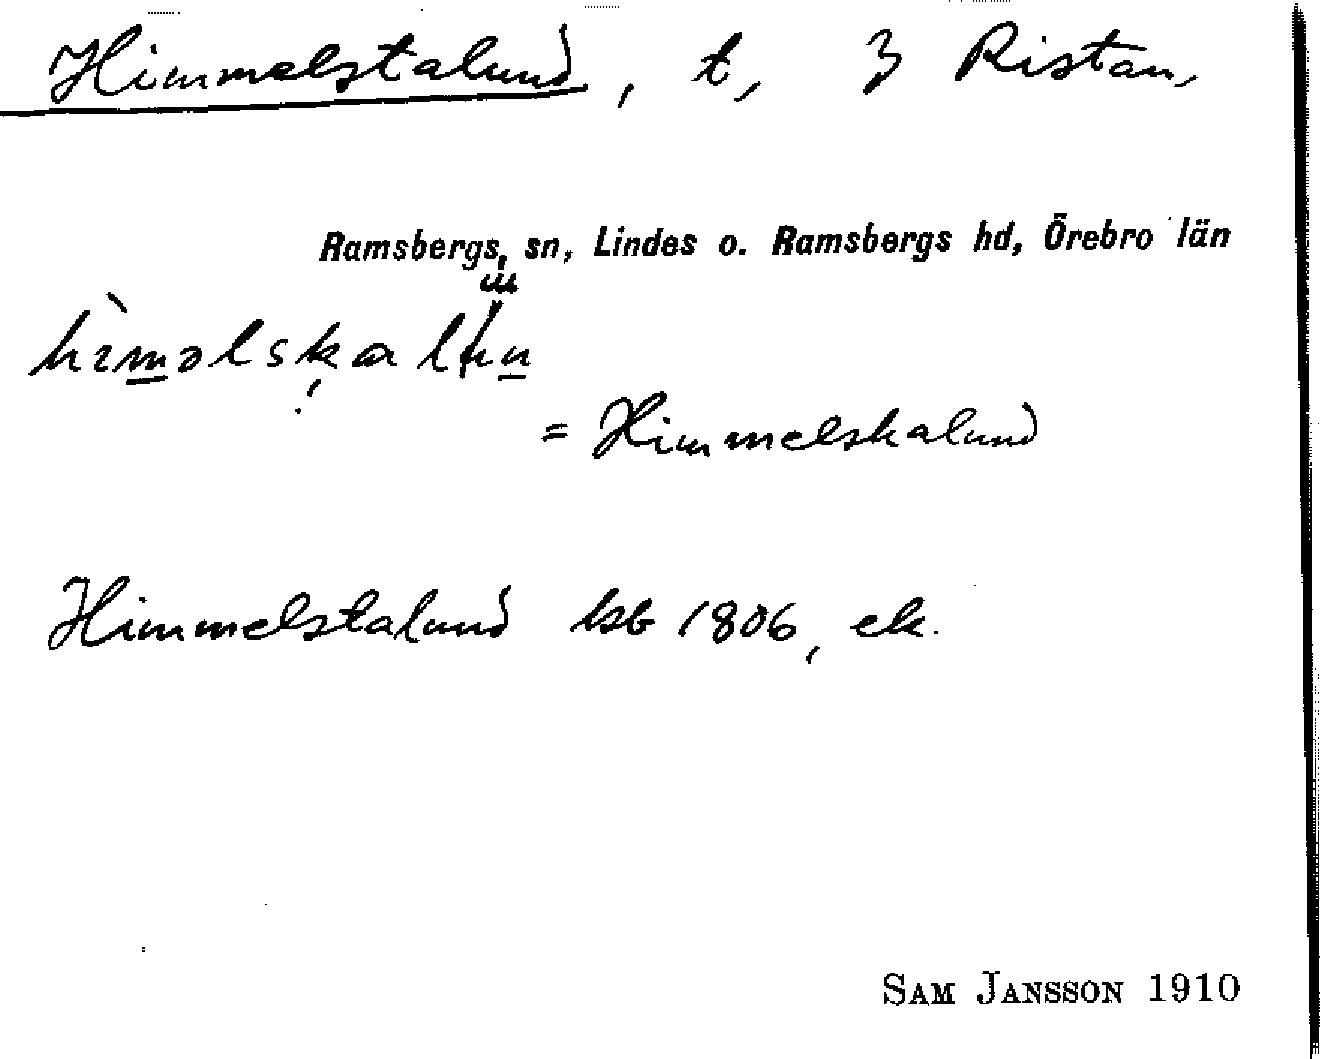 Himmelstalund, t, 3 Ristan,
Ramsbergs sn, Lindes o. Ramsbergs hd, Örebro län
hìməlskalun
= Himmelskalund
Himmelstalund hsb 1806, ek.
SAM JANSSON 1910